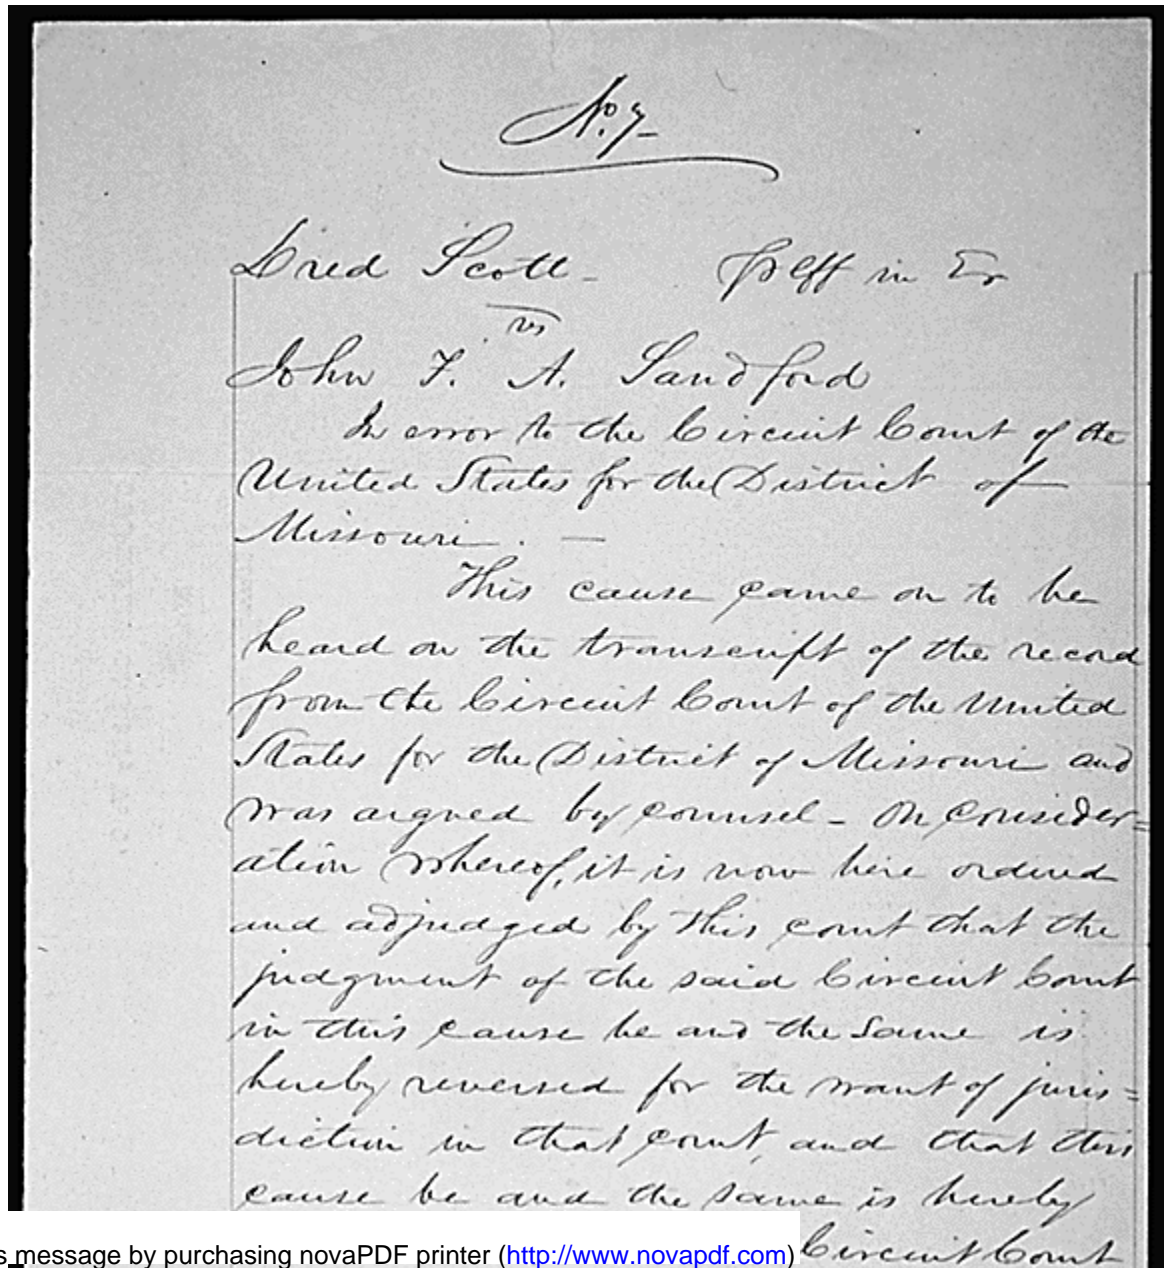 No. 7
Dred Scott - Plff in Er
vs
John F. A. Sandford
In error to the Circuit Court of the
United States for the District of
Missouri. —
This cause came on to be
heard on the transcript of the record
from the Circuit Court of the United
States for the District of Missouri and
was argued by counsel - On consider=
ation whereof, it is now here ordered
and adjudged by this court that the
judgment of the said Circuit Court
in this cause be and the same is
hereby reversed for the want of juris=
diction in that court, and that this
cause be and the same is hereby
Circuit Court
s message by purchasing novaPDF printer (http://www.novapdf.com)